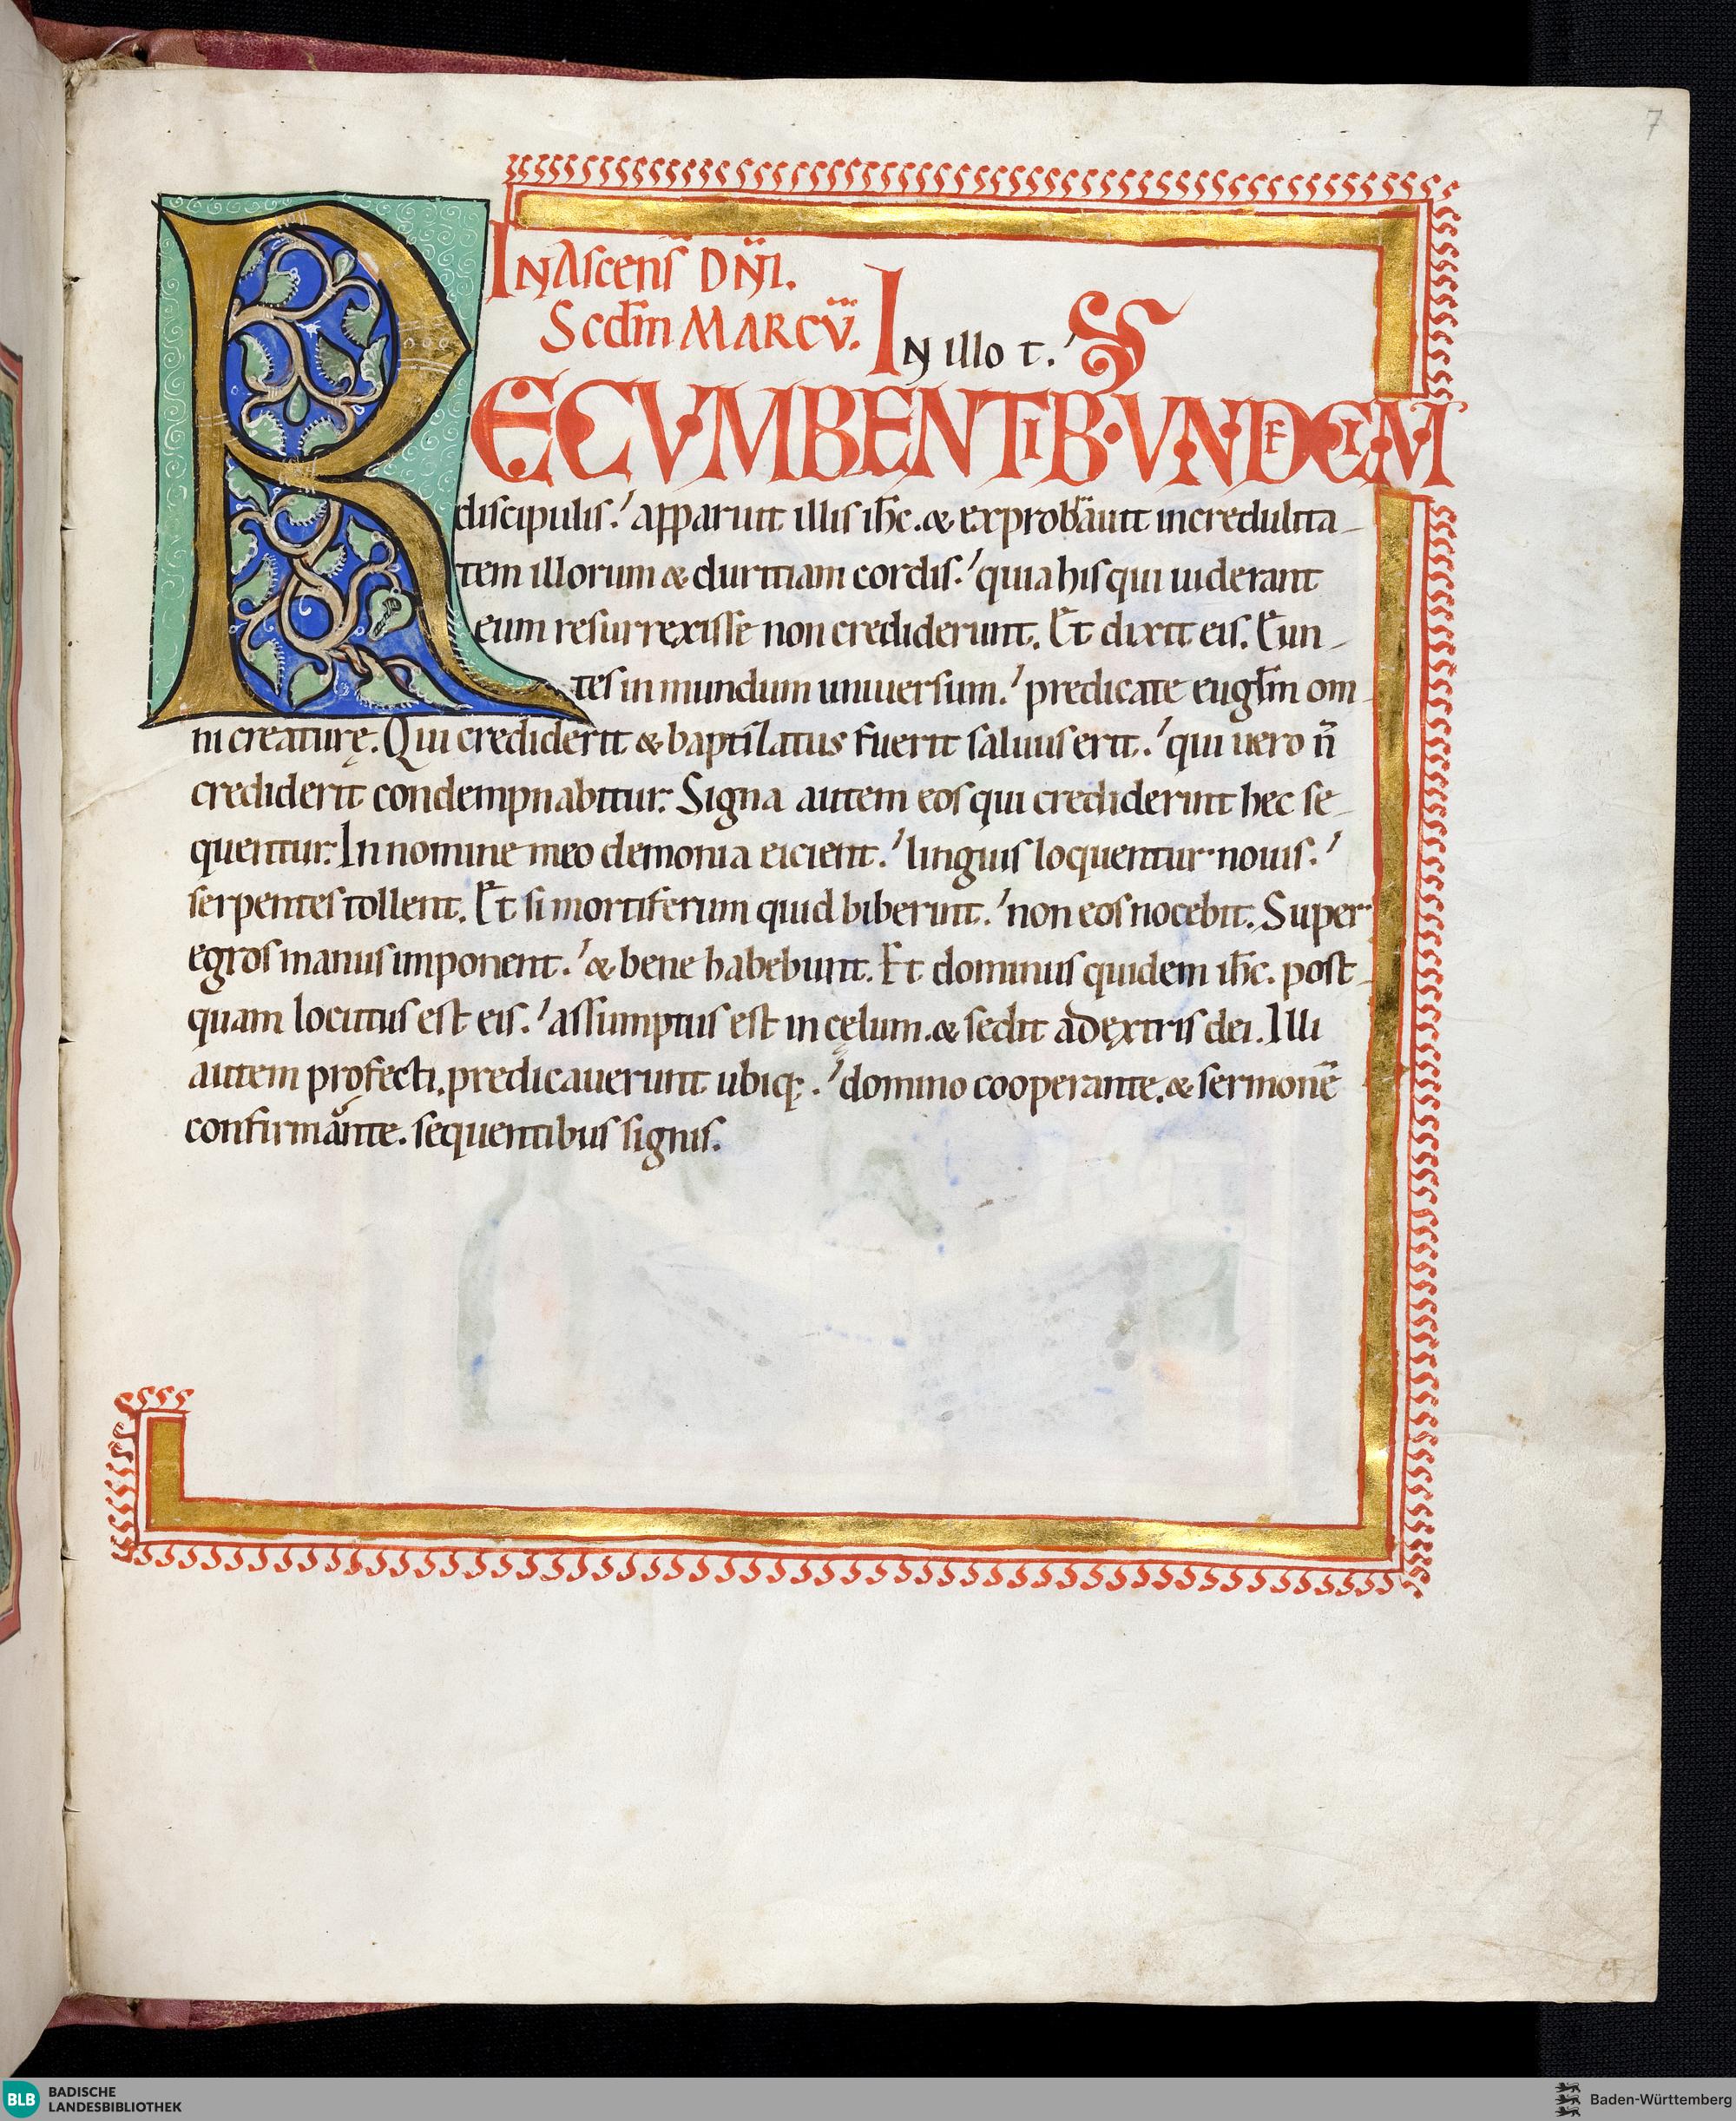 7
IN Ascens̄ DN̄I.
Scd̄m MARCV̄. IN illo t.
RECVMBENTIB· VNDECIM
discipulis. apparuit illis ih̄c. & exprobrauit incredulita-
tem illorum & duritiam cordis. quia his qui uiderant
eum resurrexisse non crediderunt. Et dixit eis. Eun-
tes in mundum uniuersum. predicate eugl̄m om-
ni creaturę. Qui crediderit & baptizatus fuerit saluus erit. qui uero n̄
crediderit condempnabitur. Signa autem eos qui crediderint hec se-
quentur. In nomine meo demonia eicient. linguis loquentur nouis.
serpentes tollent. Et si mortiferum quid biberint. non eos nocebit. Super
egros manus imponent. & bene habebunt. Et dominus quidem ih̄c. post-
quam locutus est eis. assumptus est in cęlum. & sedit a dextris dei. Illi
autem profecti. predicauerunt ubiq;. domino cooperante. & sermonē
confirmante. sequentibus signis.
BLB BADISCHE
LANDESBIBLIOTHEK
Baden-Württemberg